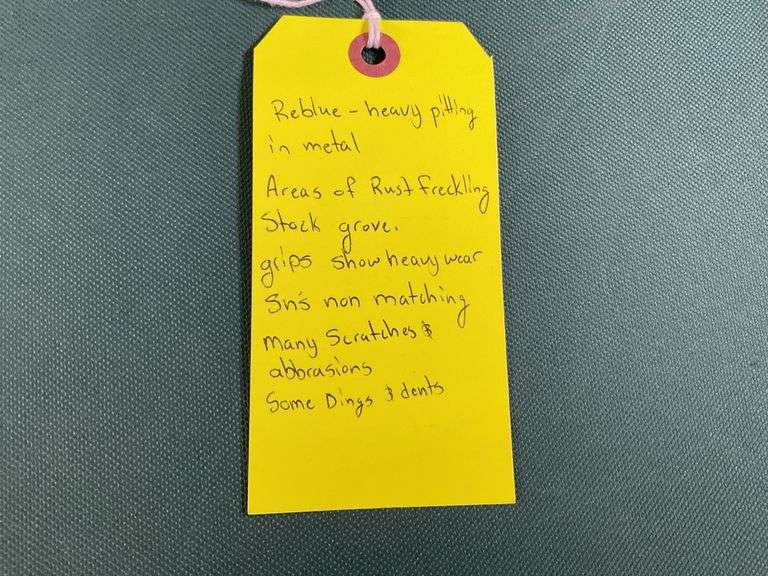 Reblue - heavy pitting
in metal
Areas of Rust freckling
Stock grove.
grips show heavy wear
Sn's non matching
many Scratches &
abbrasions
Some Dings & dents